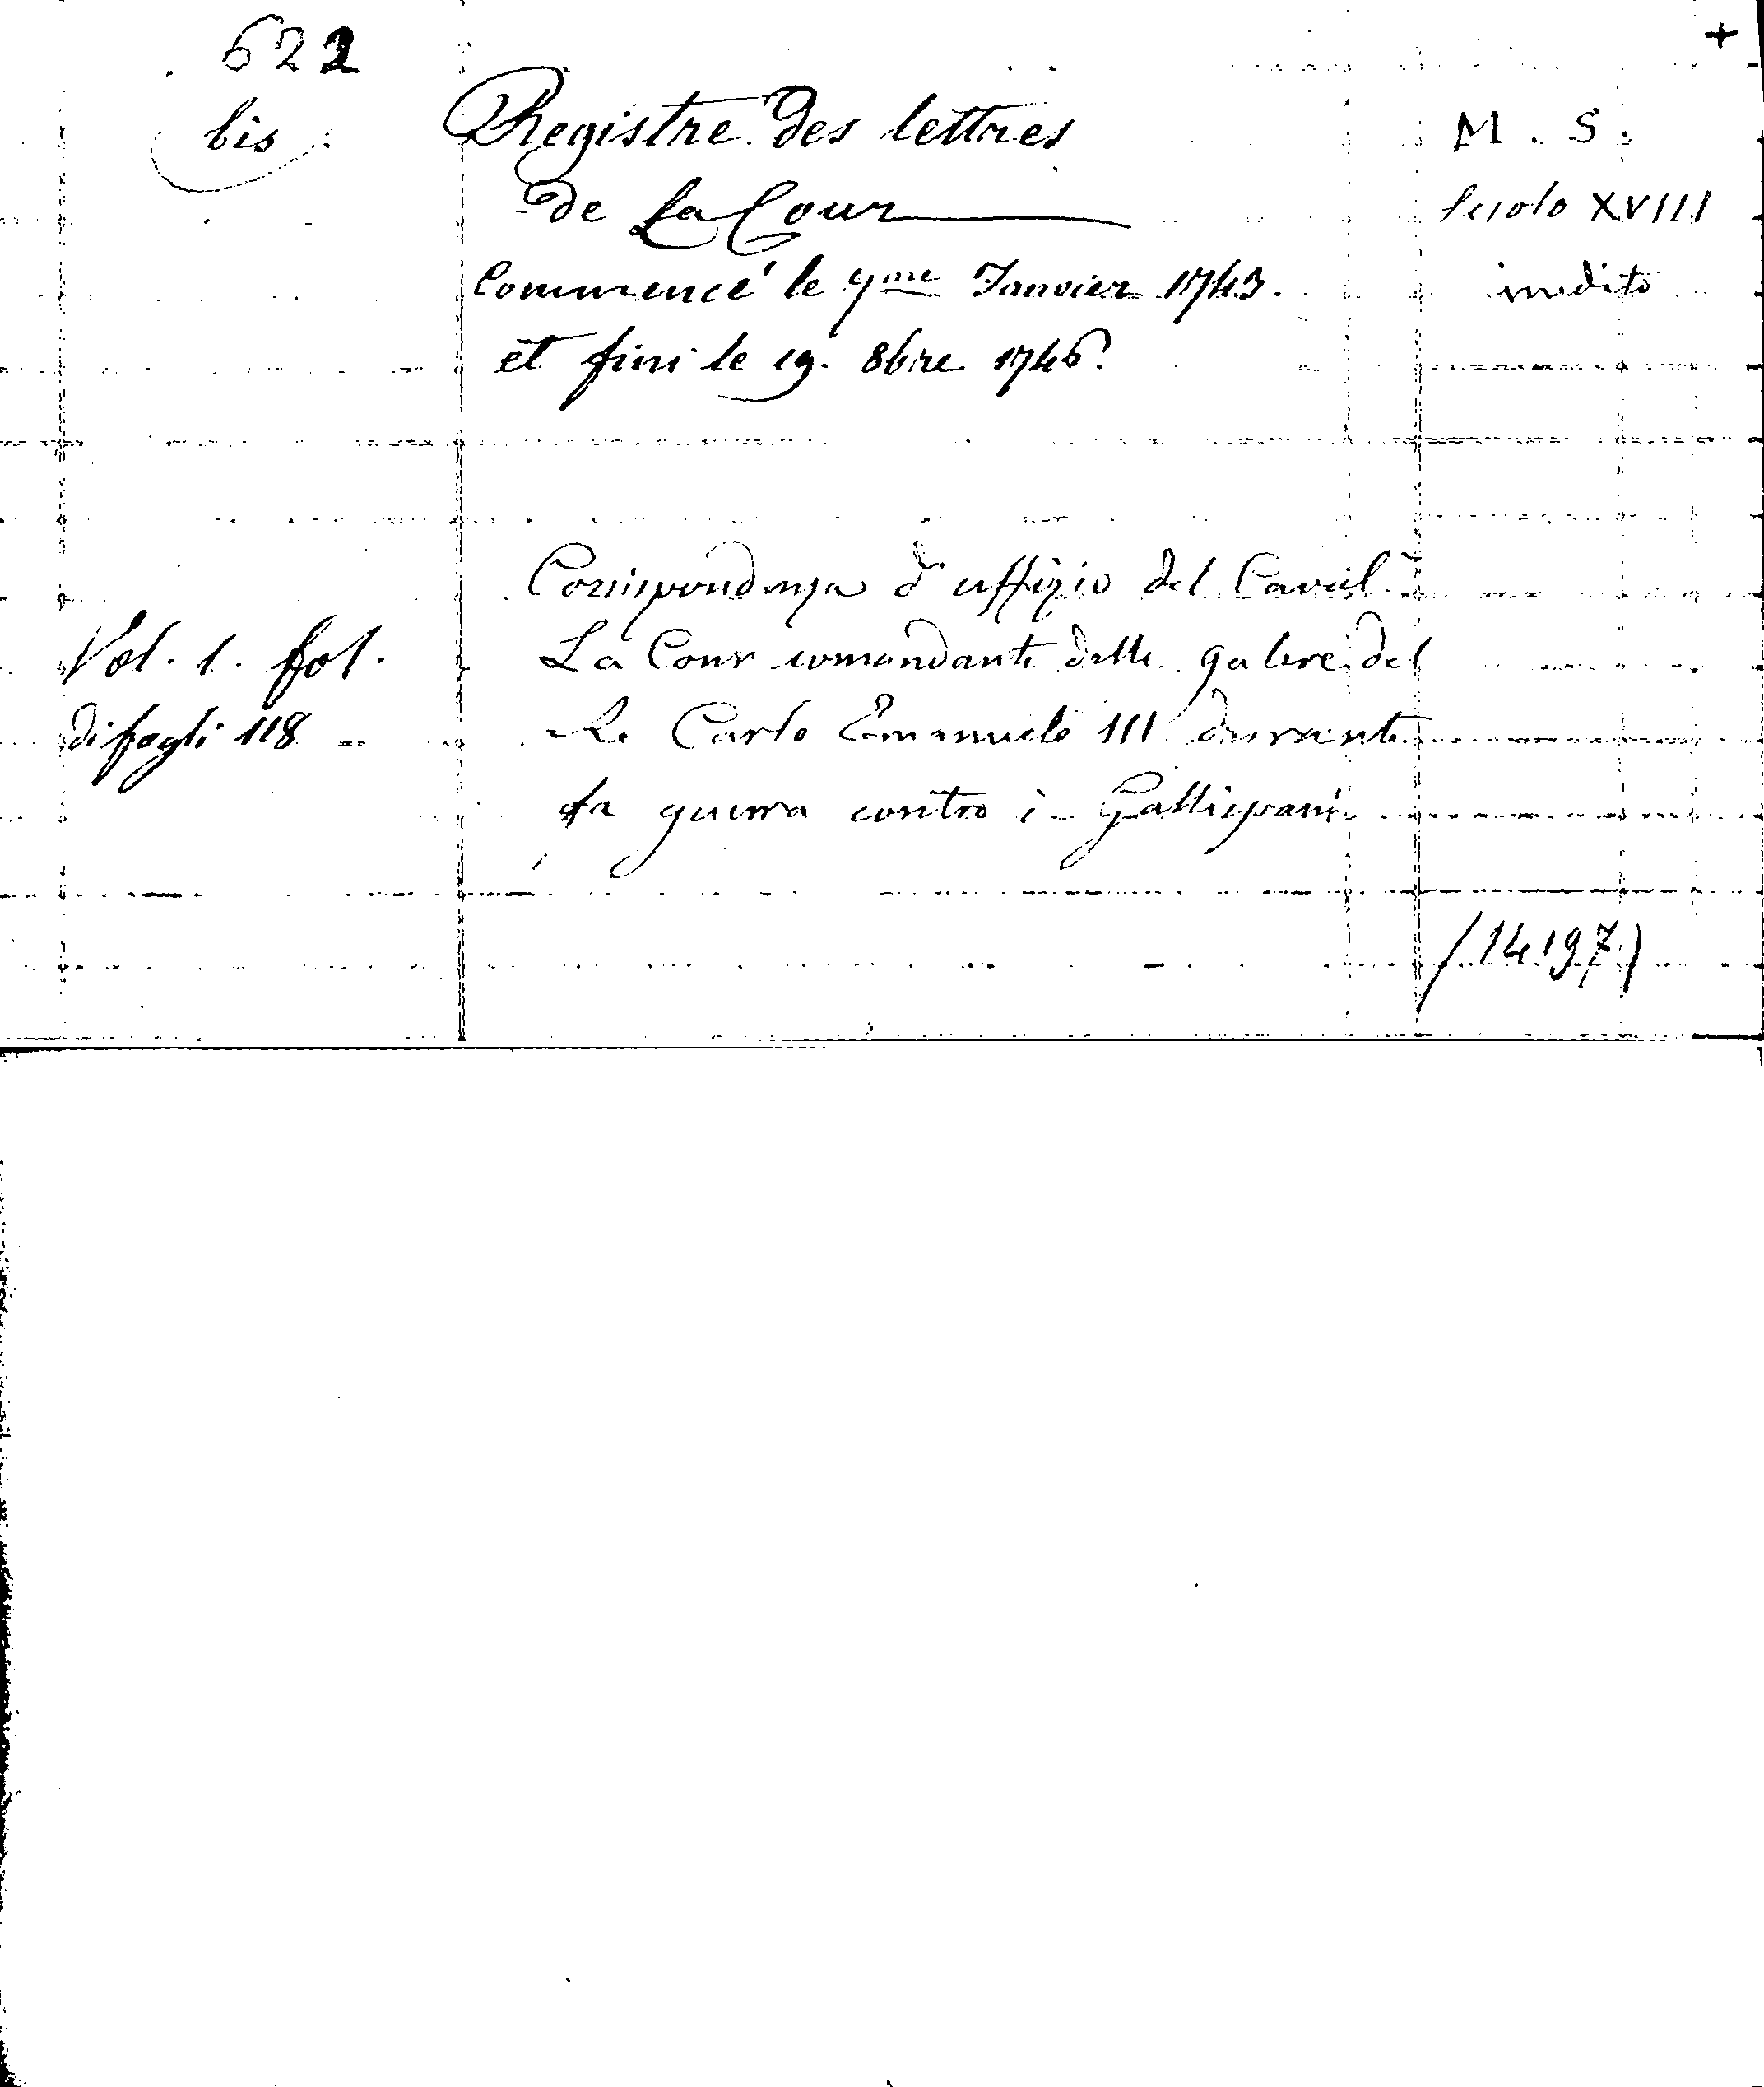 622
bis
+
Registre des lettres
de La Cour
Commencé le 9me Janvier 1743.
et fini le 19. 8bre 1746.
M. S.
Secolo XVIII
inedito
Vol. 1. fol.
di fogli 118
Corrispondenza d'uffizio del
La Cour comandante delle galere del
Re Carlo Emanuele III durante
la guerra contro i Gallispani
(14197)